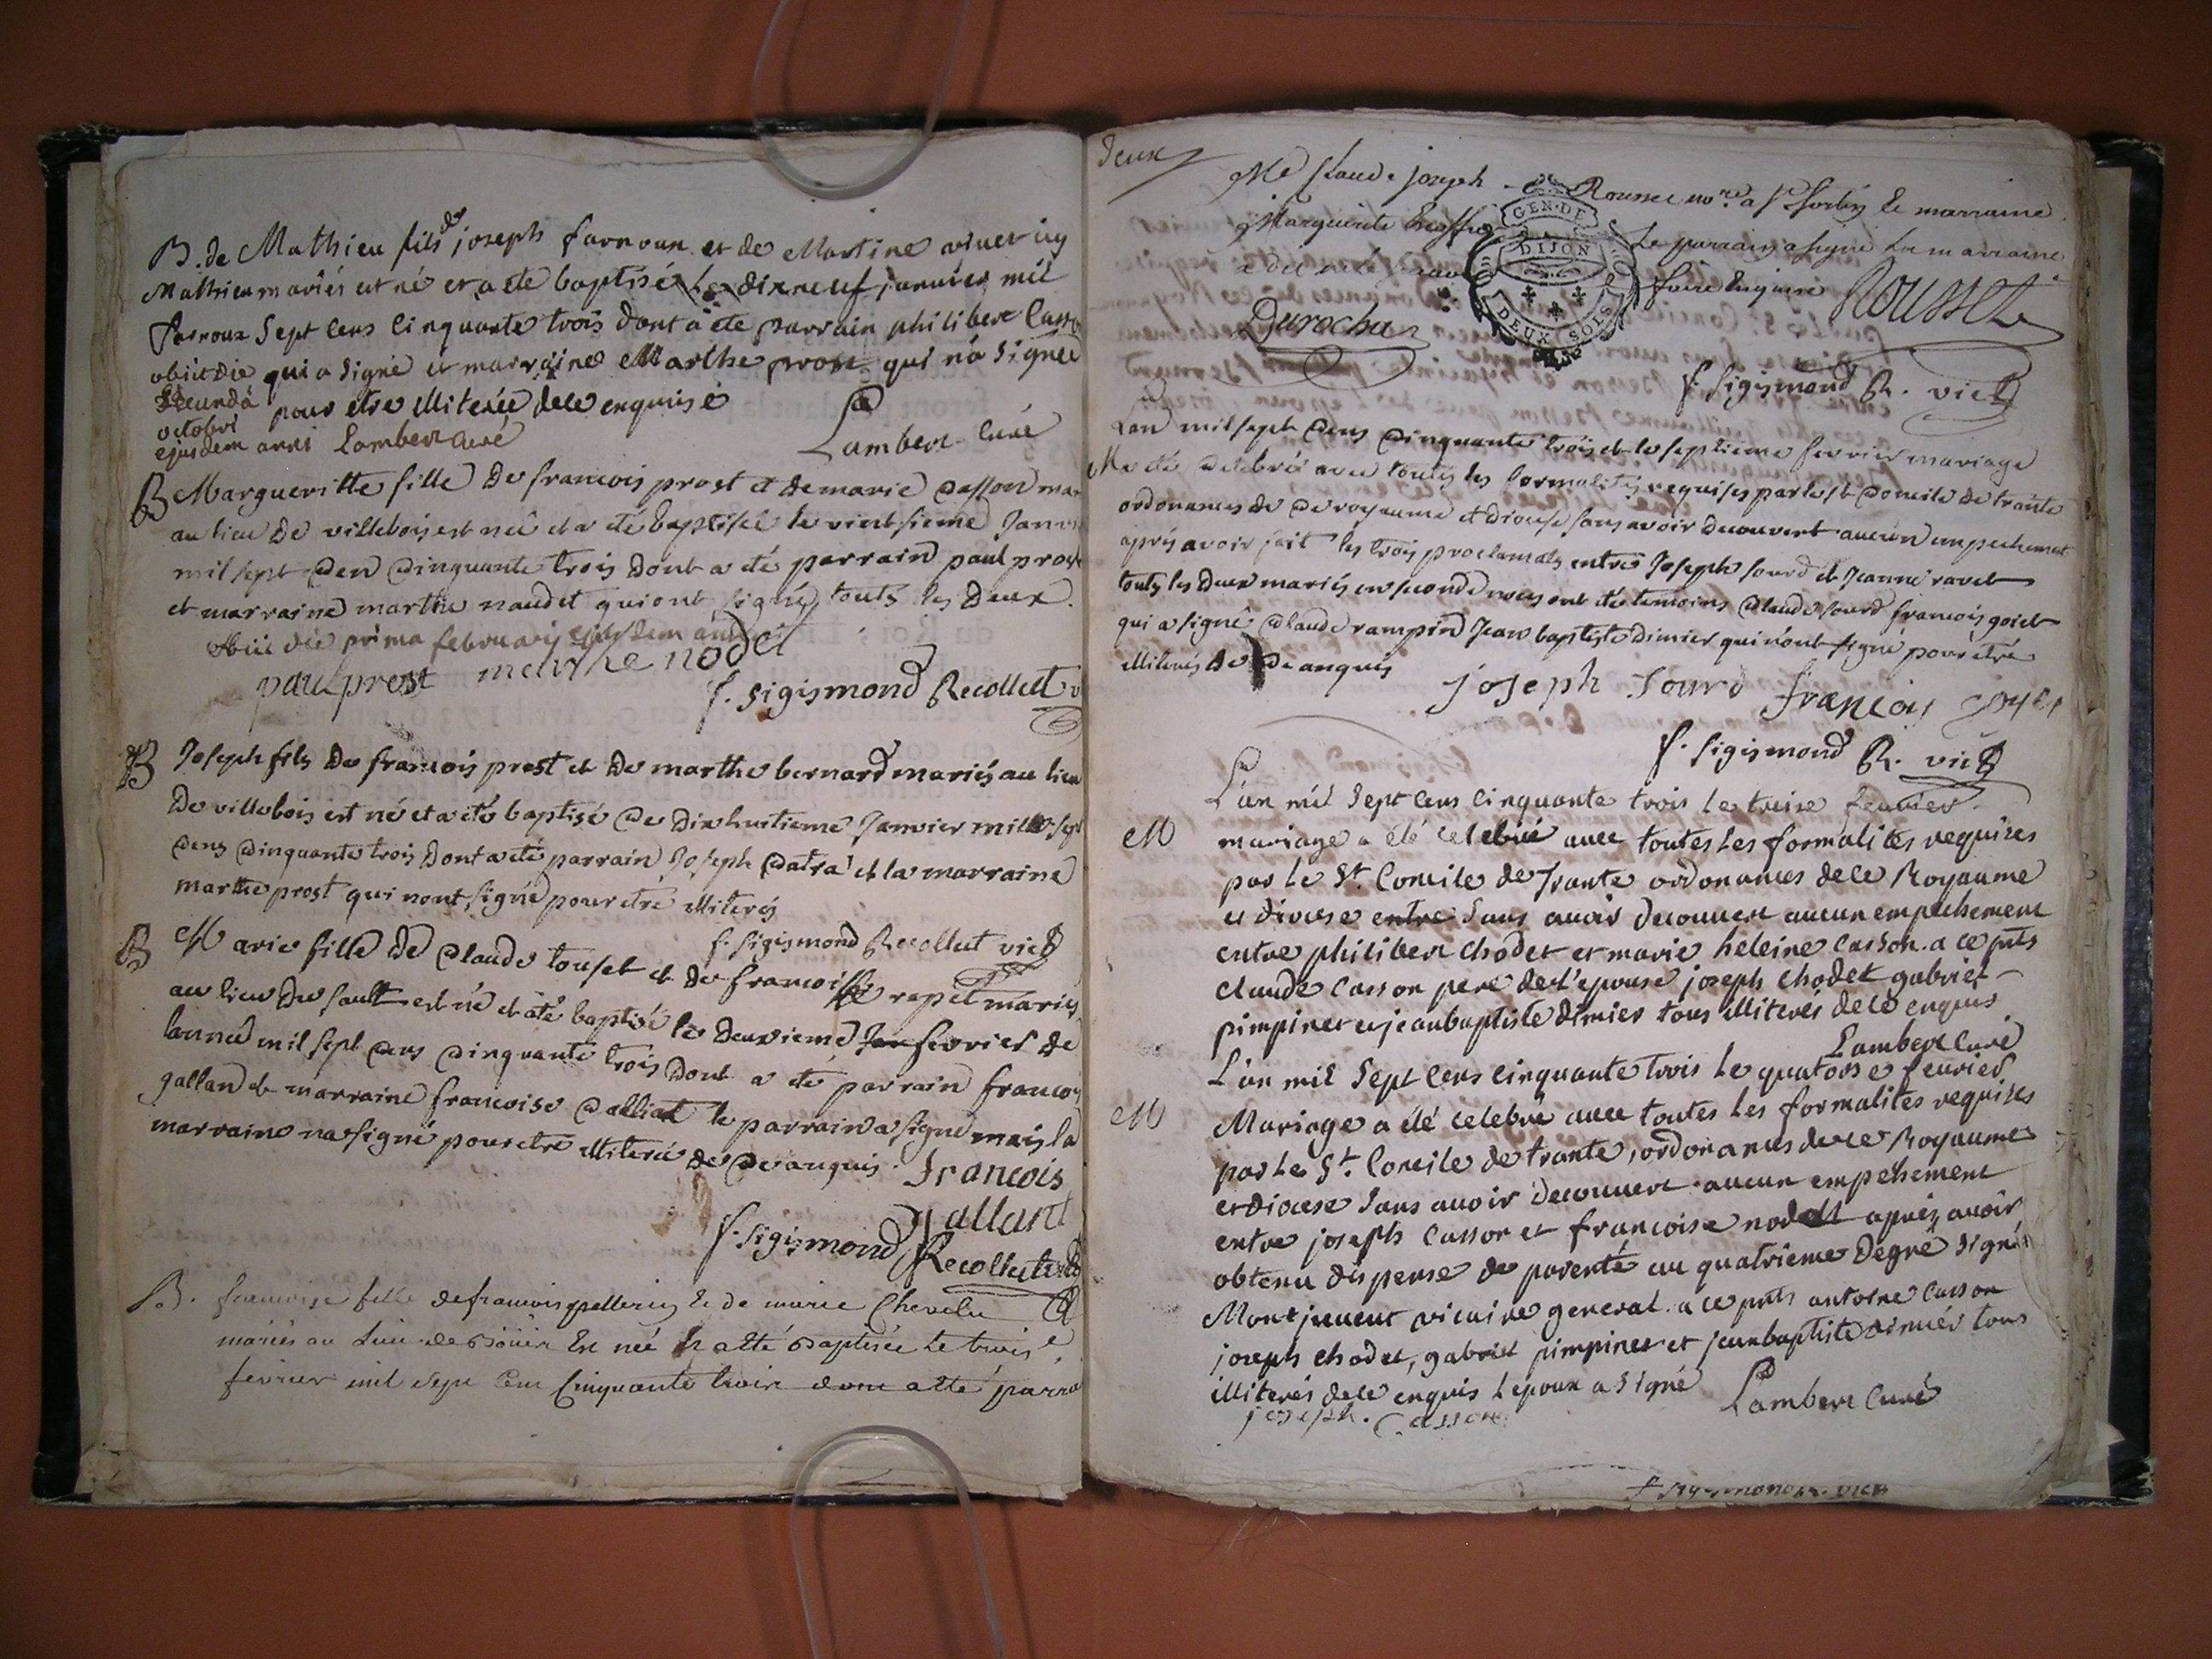 B. de Mathieu fils de joseph farnoux et de Martine
Mathieu mariés est né et a été baptisé le dix neuf janvier mil
farnoux Sept Cens Cinquante trois dont a été parrain philibert Casson
obiit die qui a signé et marraine Marthe prost qui n'a signée
secundâ pour etre illiterée de ce enquise
octobri
ejusdem anni Lambert curé
Lambert Curé
B Margueritte fille De francois prost et de marie Casson mar
au lieu De villebois est neé et a été Baptisée le vintsieme Janvi
mil sept Cen Cinquante trois Dont a été parrain paul prost
et marraine marthe naudet qui ont signés touts les Deux.
obiit die prima februarij ejusdem anni
paul prost marthe nodet
f. Sigismond Recollect v
B Joseph fils De francois prost et De marthe bernard mariés au lieu
De villebois est né et a été baptisé Ce Dix huitieme Janvier mille sept
Cens Cinquante trois Dont a été parrain Joseph Catra et la marraine
marthe prost qui n'ont signé pour etre illiterés
f. Sigismond Recollect vic
B Marie fille De Claude touset et De francoise rapet mariés
au lieu Du Sault est né et a été baptisé le Deuxieme Jan fevrier de
lannée mil sept Cens Cinquante trois Dont a été parrain francois
galland et marraine francoise Calliat le parrain a signé mais la
marraine n'a signé pour etre illiterée de Ce anquis. francois
Jallard
f. Sigismond Recollect vic
B. francoise fille de francois pellerin & de marie Chevelu
mariés au lieu de Bouis Est née & a été Baptisée le trois e
fevrier mil sept Cent Cinquante trois dont a été parra
deux
Me Claude joseph Rousset nore a St Sorlin & marraine
Marguerite
Le parrain a signé La marraine
GEN. DE
DIJON
DEUX SOLS
Durochat
Rousset
f. Sigismond R. vic
Lan mil sept Cens Cinquante trois et le septieme fevrier mariage
M a été Celebré avec toutes les formalités requises par le st Concile de trante
ordonances de Ce royaume et Diocese sans avoir Decouvert aucun empechement
aprés avoir fait les trois proclamats entre Joseph Sourd et Jeanne ravet
touts les Deux mariés en seconde noces ont été temoins Claude Sourd francois goiet
qui a signé Claude rampin Jean baptiste Dimier qui n'ont signé pour être
illiterés De Ce anquis
joseph Sourd françois goyet
f. Sigismond R. vic
L'an mil Sept Cens Cinquante trois le treise fevrier.
M mariage a été celebré avec toutes les formalités requises
par le St. Concile de Trante ordonances de ce Royaume
et diocese entre Sans avoir decouvert aucun empechement
entre philibert Chodet et marie heleine Casson. a ce pnts
Claude Casson pere de l'epouse joseph Chodet gabriel
pimpinet et jeanbaptiste dimier tous illiterés de ce enquis
Lambert curé
L'an mil Sept Cens Cinquante trois le quatorse fevrier
M Mariage a été celebré avec toutes les formalités requises
par le St. Concile de trante, ordonances de ce Royaume
et diocese Sans avoir decouvert aucun empechement
entre joseph Casson et francoise nodet aprés avoir
obtenu dispense de parenté au quatrieme degré Signé
Montjouvent vicaire general. a ce pnts antoine Casson
joseph Chodet, gabriel pimpinet et jeanbaptiste dimier tous
illiterés de ce enquis L'epoux a signé Lambert Curé
joseph. Casson
f Sigismond R. vic